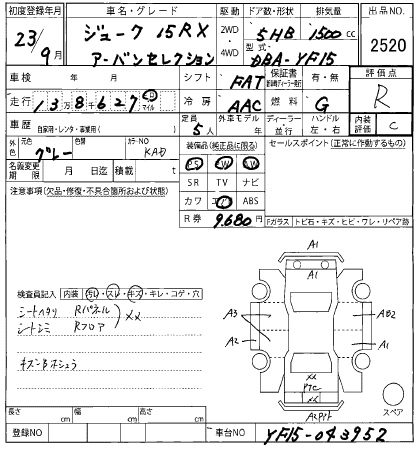 初度登録年月 車名・グレード 駆動 ドア数・形状 排気量 出品NO.
23/9月 ジューク 15RX 2WD 4WD 5HB 1500cc 2520
アーバンセレクション 型式 DBA-YF15
車検 年 月 シフト FAT 保証書 有・無 評価点
走行 13万8千627km マイル 冷房 AAC 燃料 G R
車歴 自家用・レンタ・事業用( ) 定員 5人 外車モデル 年 ディーラー・並行 ハンドル 左・右 内装評価 C
外色 元色 グレー 色替 カラーNO KAD 装備品(純正品に限る) セールスポイント(正常に作動するもの)
名義変更期限 月 日迄 積載 t PS PW SW
注意事項(欠品・修復・不具合箇所および状態) SR TV ナビ
カワ エアB ABS
R券 9,680円
Fガラス トビ石・キズ・ヒビ・ワレ・リペア跡
検査員記入 内装 汚レ・スレ・キズ・キレ・コゲ・穴
シートヘタリ Rパネル
シートシミ Rフロア XX
キズンBホシュラ
A1
A1
A3 AB2
A2 A1
XX
PTC
スペア
長さ cm 幅 cm 高さ cm
登録NO 車台NO YF15-043952